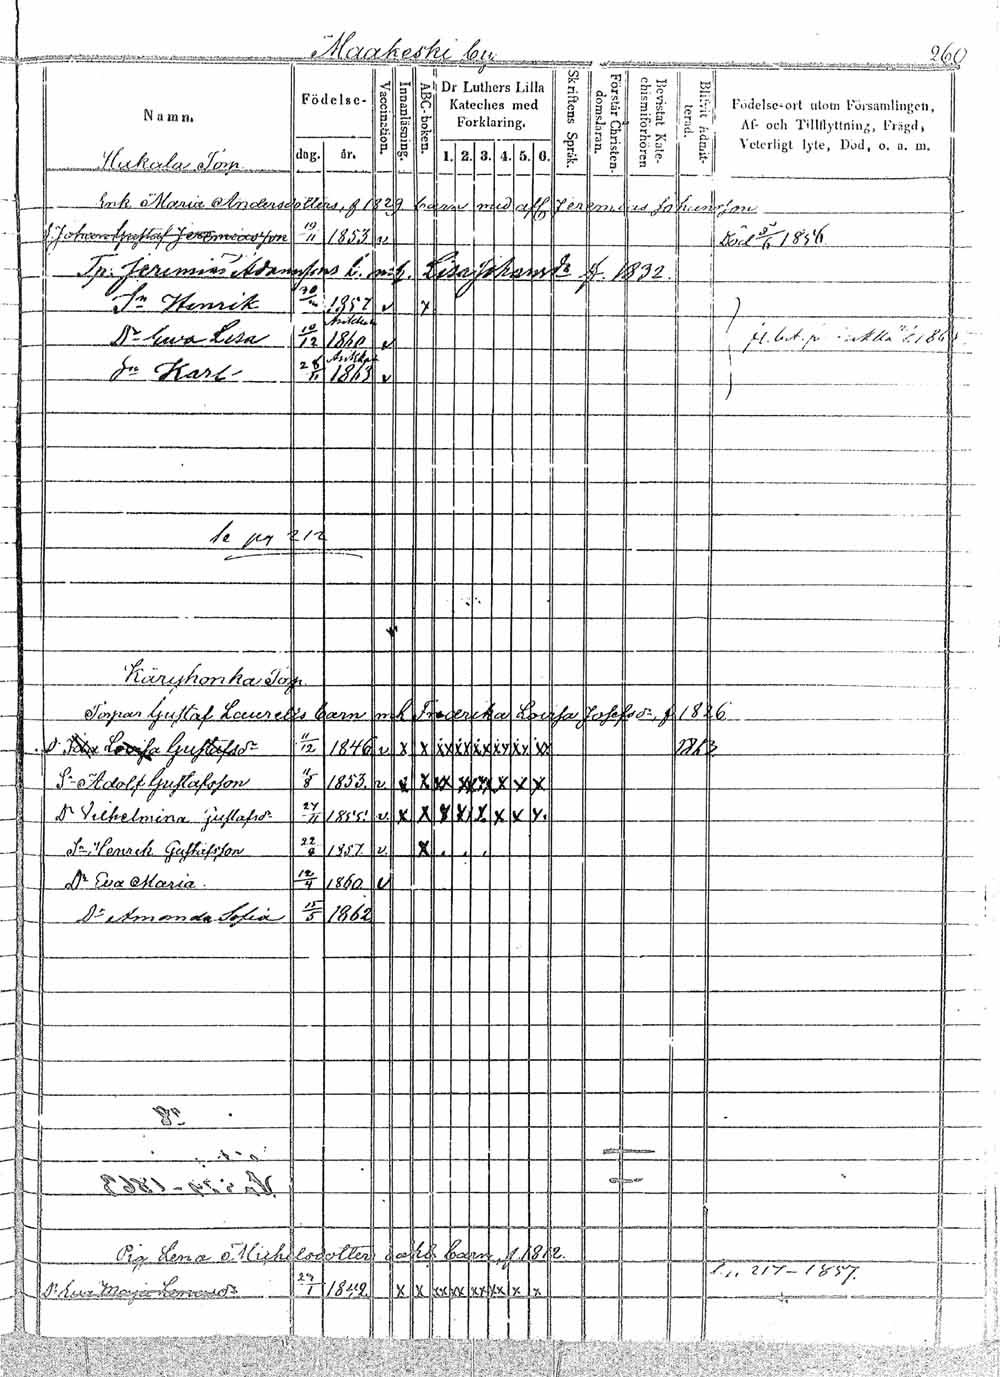 Maakeski by.
260
Namn.
Födelse-
dag. år.
Vaccination.
Innanläsning.
ABC-boken.
Dr Luthers Lilla
Kateches med
Förklaring.
1. 2. 3. 4. 5. 6.
Skriftens Språk.
Förstår Christen-
domsläran.
Bevistat Kate-
chismiförhören
Blifvit admit-
terad.
Födelse-ort utom Församlingen,
Af- och Tillflyttning, Frägd,
Veterligt lyte, Död, o. a. m.
Hukala Torp.
Enk Maria Andersdotters, f 1829 barn med afl. Jeremias Johansson
S. Johan Gustaf Jeremiasson 19/11 1853 v Död 1856
Tp. Jeremias Adamssons b. m. h. Lisa Johansdr f. 1832.
Sn Henrik 30 1857 v x
Dr Ewa Lisa 10/12 1860 v
Sn Karl 28/11 1863 v
se pg 212
Käryhonka Torp
Torpar Gustaf Laurells barn mh Fredrika Lovisa Josefsdr, f 1826
Dr Lovisa Gustafsdr 11/12 1846 v x x xx xx xx xx xx xx 1863
Sn Adolf Gustafsson 11/8 1853 v. x x xx xx xx x x x
Dr Vilhelmina Gustafsdr 27/11 1855 v. x x x x x x x x.
Sn Henrik Gustafsson 22 1857 v. x . . .
Dr Eva Maria. 12/4 1860 v
Dr Amanda Sofia 15/5 1862
Pig Lena Michelsdotters oäkt barn, f 1812.
217-1857.
Dr Eva Maja Lenasdr 27/1 1842 x x xx xx xx xx x x